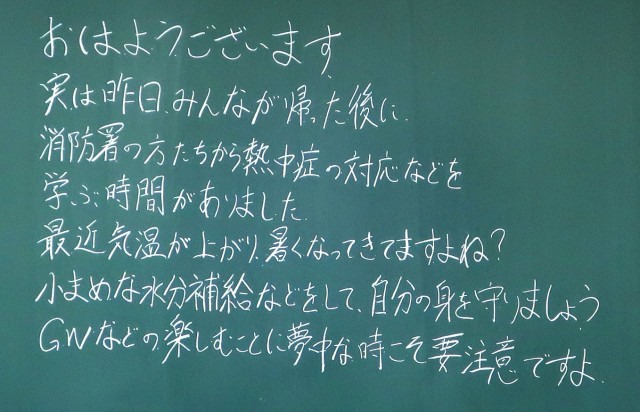 おはようございます
実は昨日、みんなが帰った後に、
消防署の方たちから熱中症の対応などを
学ぶ時間がありました。
最近気温が上がり、暑くなってきてますよね?
小まめな水分補給などをして、自分の身を守りましょう
GWなどの楽しむことに夢中な時こそ要注意ですよ。